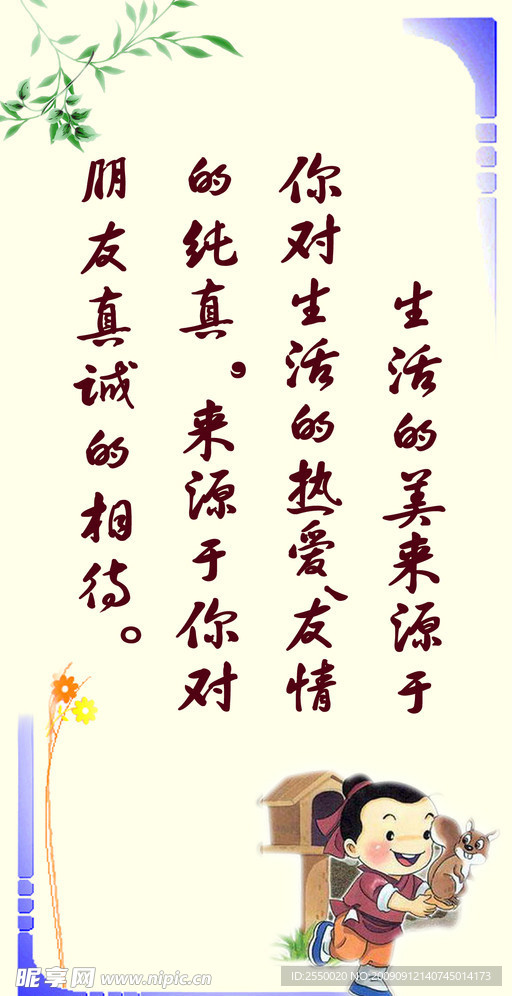 生活的美来源于
你对生活的热爱、友情
的纯真。来源于你对
朋友真诚的相待。
昵享网 www.nipic.cn
ID:2550020 NO:20090912140745014173